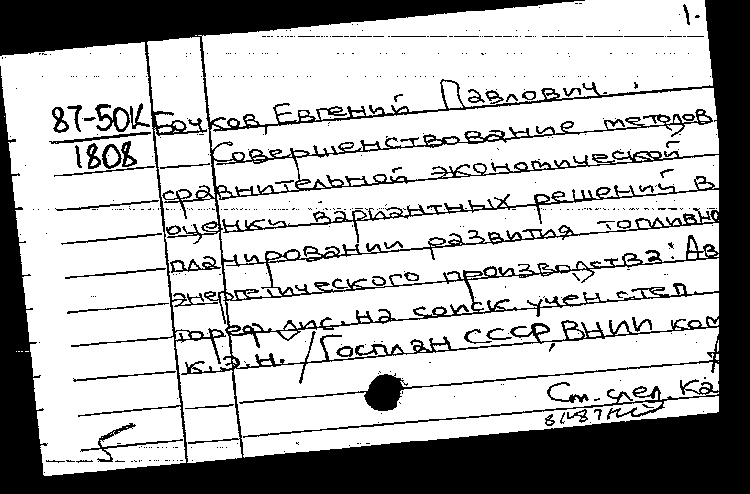 1.
87-50К Бочков, Евгений Павлович.
1808 Совершенствование методов
сравнительной экономической
оценки вариантных решений в
планировании развития топливно
энергетического производства: Ав
тореф. дис. на соиск. учен. степ.
к.э.н. / Госплан СССР, ВНИИ ком
См. след. ка